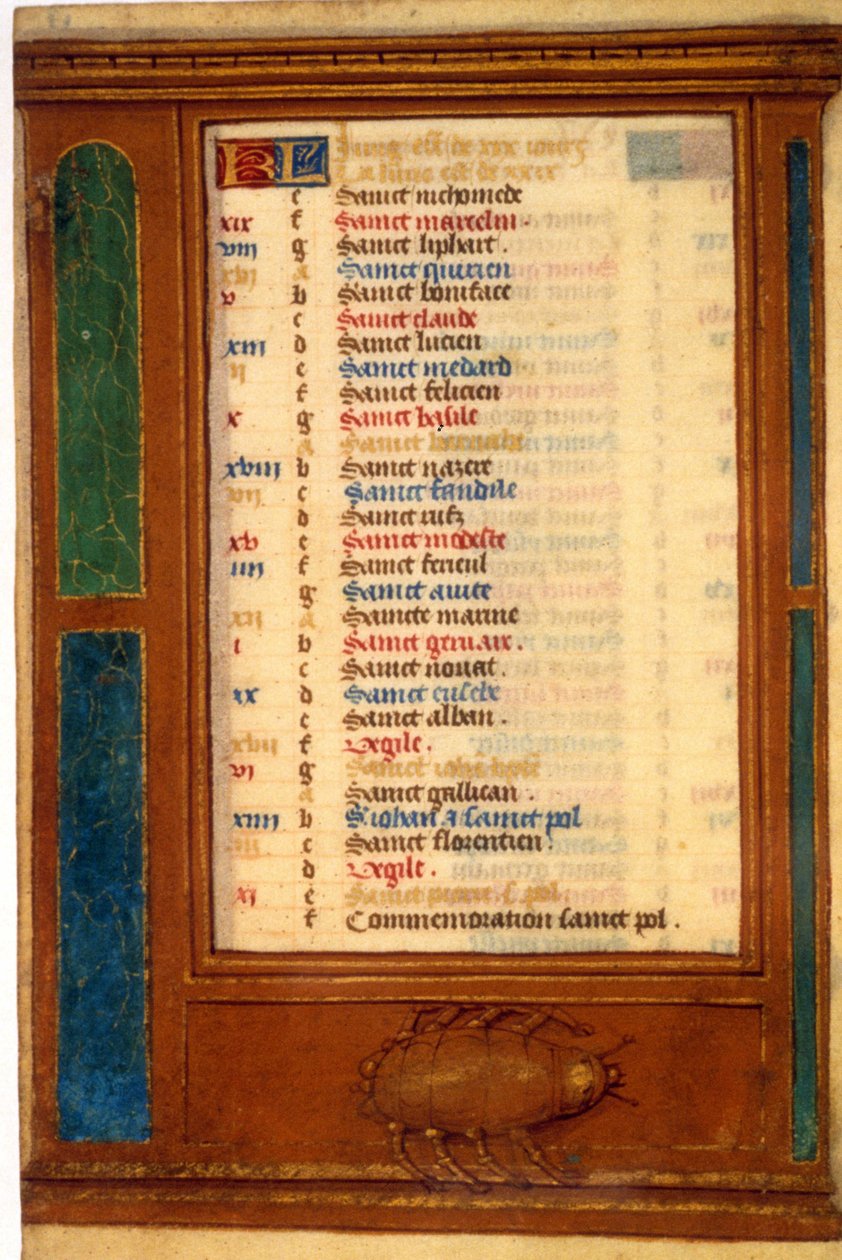 KL Juing est de xxx iours
La lune est de xxix
e Sainct nichomede
xix f Sainct marcelin .
viii g Sainct liphart
xvi a Sainct quirien
v b Sainct boniface
c Sainct claude
xiii d Sainct lucien
ii e Sainct medard
f Sainct felicien
x g Sainct basile
a Sainct
xviii b Sainct nazere
vii c Sainct landile
d Sainct rufz
xv e Sainct modeste
iiii f Sainct fericul
g Sainct auite
xii a Saincte marine
i b Sainct geruaix .
c Sainct nouat .
ix d Sainct eusebe
e Sainct alban .
xvii f Vegile .
vi g Sainct
a Sainct gallican .
xiiii b S iohan & sainct pol
iii c Sainct florentien
d Vegile .
xi e Sainct pierre s pol
f Commemoration sainct pol .